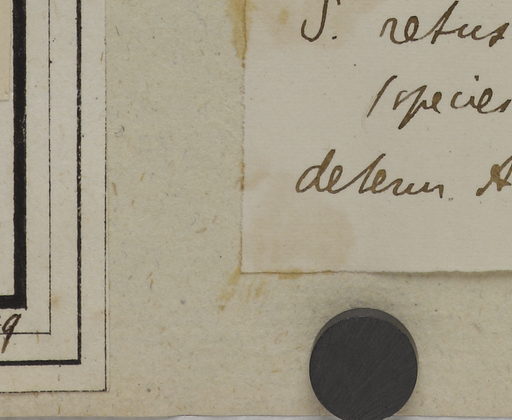 S. retus
species
determ. A
9